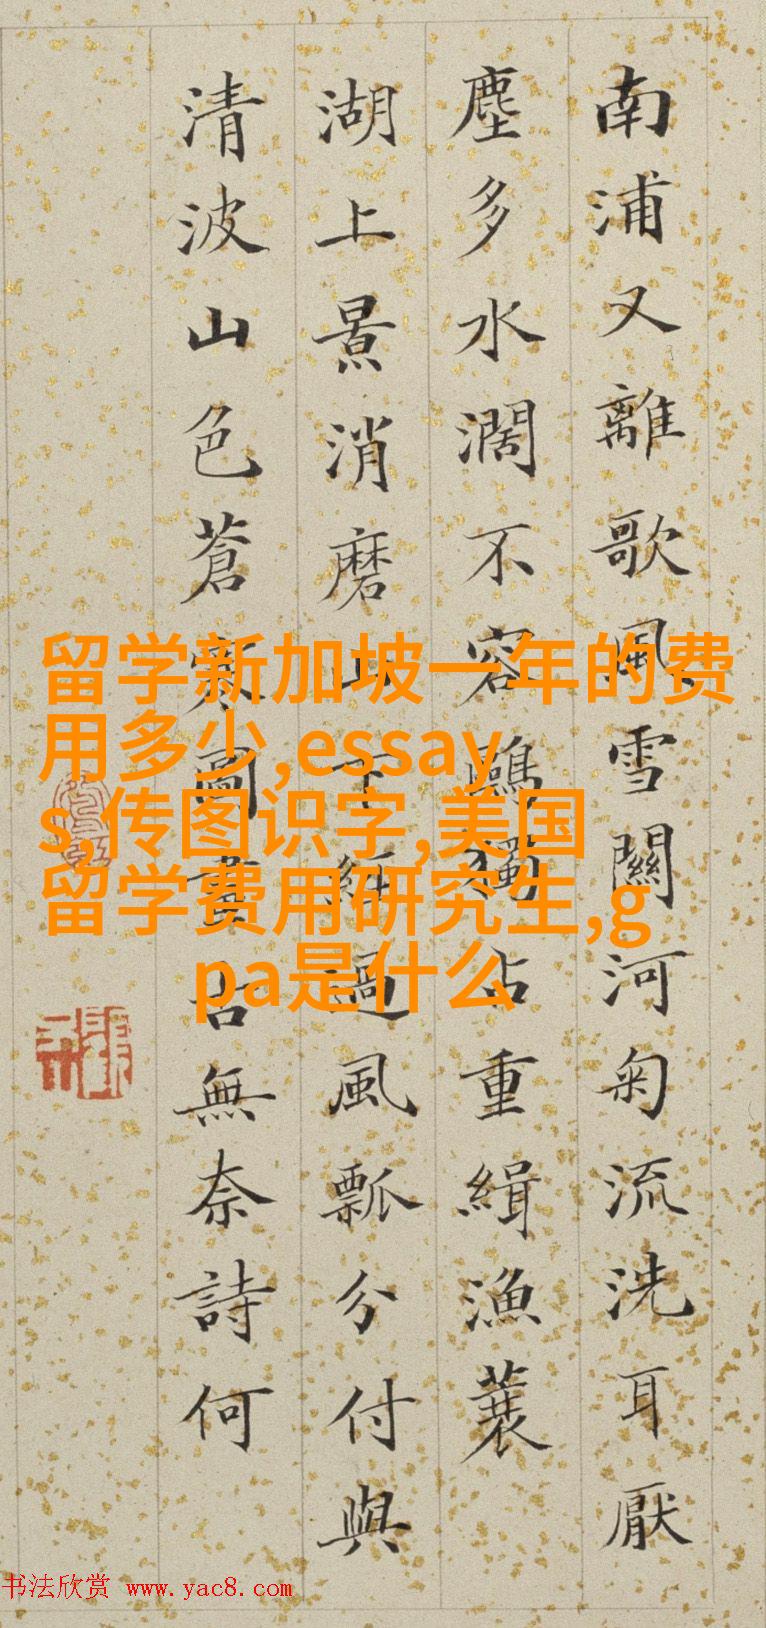 南浦又離歌風雪關河匊流洗耳厭
塵多水濶不容鷗獨占重緝漁蓑
湖上景消磨山下經過風瓢分付與
清波山色蒼寒圖畫古無奈詩何
留学新加坡一年的费
用多少,essay
s,传图识字,美国
留学费用研究生,g
pa是什么
书法欣赏 www.yac8.com